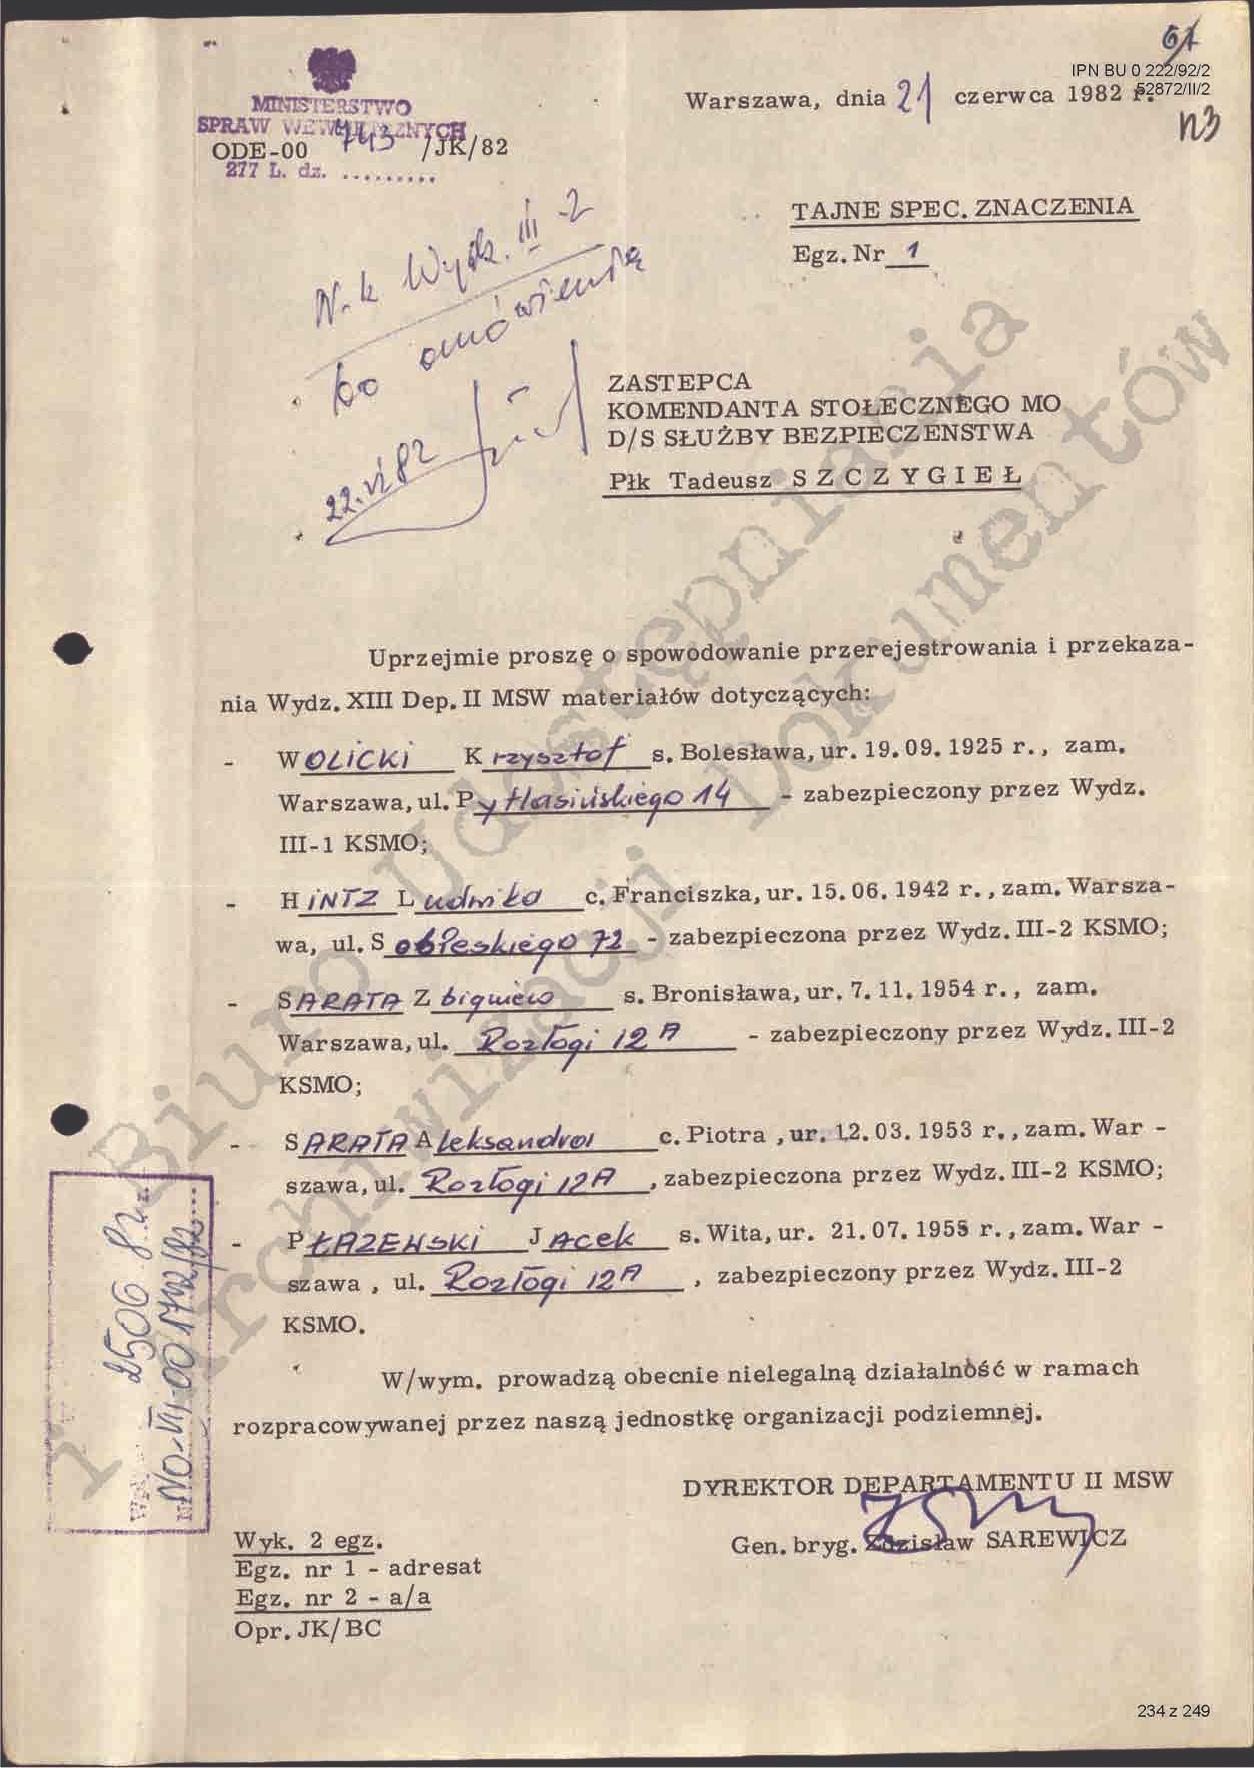 61
IPN BU 0 222/92/2
52872/II/2
MINISTERSTWO
SPRAW WEWNĘTRZNYCH
ODE-00 743 /JK/82
277 L. dz. .........
Warszawa, dnia 21 czerwca 1982 r.
TAJNE SPEC. ZNACZENIA
Egz. Nr 1
N.k Wydz. III-2
do omówienia
22.VI 82
ZASTEPCA
KOMENDANTA STOŁECZNEGO MO
D/S SŁUŻBY BEZPIECZENSTWA
Płk Tadeusz S Z C Z Y G I E Ł
Uprzejmie proszę o spowodowanie przerejestrowania i przekaza-
nia Wydz. XIII Dep. II MSW materiałów dotyczących:
- WOLICKI Krzysztof s. Bolesława, ur. 19.09. 1925 r., zam.
Warszawa, ul. Pytlasińskiego 14 - zabezpieczony przez Wydz.
III-1 KSMO;
- HINTZ Ludmiła c. Franciszka, ur. 15.06. 1942 r., zam. Warsza-
wa, ul. Sobieskiego 72 - zabezpieczona przez Wydz. III-2 KSMO;
- SARATA Zbigniew s. Bronisława, ur. 7. 11. 1954 r., zam.
Warszawa, ul. Rozłogi 12 A - zabezpieczony przez Wydz. III-2
KSMO;
- SARATA Aleksandra c. Piotra , ur. 12. 03. 1953 r., zam. War -
szawa, ul. Rozłogi 12A , zabezpieczona przez Wydz. III-2 KSMO;
- PŁAZEWSKI Jacek s. Wita, ur. 21. 07. 1955 r., zam. War -
szawa , ul. Rozłogi 12A , zabezpieczony przez Wydz. III-2
KSMO.
W/wym. prowadzą obecnie nielegalną działalność w ramach
rozpracowywanej przez naszą jednostkę organizacji podziemnej.
DYREKTOR DEPARTAMENTU II MSW
Gen. bryg. Zdzisław SAREWICZ
Wyk. 2 egz.
Egz. nr 1 - adresat
Egz. nr 2 - a/a
Opr. JK/BC
2506 82
234 z 249
Biuro Udostępniania
i Archiwizacji Dokumentów